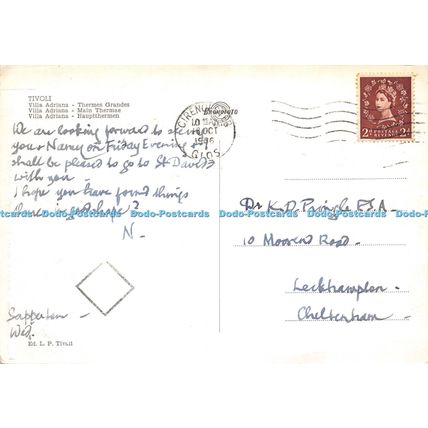 TIVOLI
Villa Adriana - Thermes Grandes
Villa Adriana - Main Thermae
Villa Adriana - Hauptthermen
We are looking forward to seeing
you & Nancy on Friday Evening &
shall be pleased to go to St Davids
with you -
I hope you have found things
in good shape?
N -
Sapperton -
Wed.
Ed. L. P. Tivoli
CIRENCESTER
10
OCT
1956
GLOS
POSTAGE
REVENUE
2D 2D
Dr K. D. Pringle F.S.A -
10 Moorend Road -
Leckhampton -
Cheltenham -
Dodo-Postcards Dodo-Postcards Dodo-Postcards Dodo-Postcards